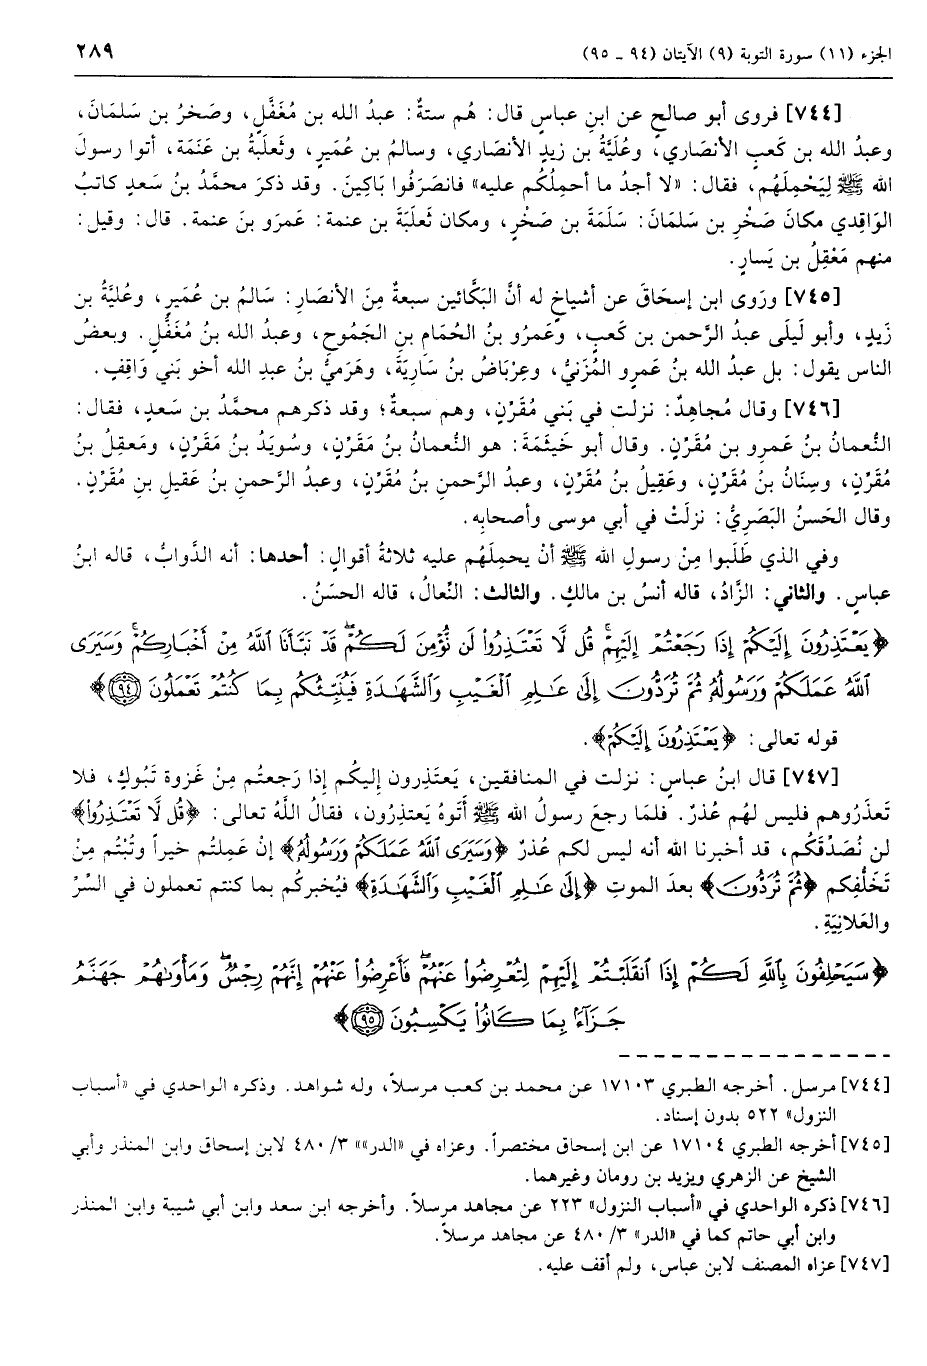 الجزء (١١) سورة التوبة (٩) الآيتان (٩٤ ـ ٩٥) ٢٨٩
[٧٤٤] فروى أبو صالحٍ عن ابنِ عباسٍ قال: هُم ستةٌ: عبدُ الله بن مُغَفَّلٍ، وصَخرُ بن سَلمَانَ،
وعبدُ الله بن كَعبٍ الأنصَاري، وعُلَيَّةُ بن زيدٍ الأنصَاري، وسالمُ بن عُمَيرٍ، وثَعلَبَةُ بن عَنَمَة، أتوا رسولَ
الله ﷺ لِيَحْمِلَهُم، فقال: «لا أجدُ ما أحمِلُكُم عليه» فانصَرَفُوا بَاكِينَ. وقد ذكرَ محمَّدُ بنُ سَعدٍ كاتبُ
الوَاقِدي مكانَ صَخْرِ بن سَلمَانَ: سَلَمَةَ بن صَخْرٍ، ومكان ثَعلبَةَ بن عنمة: عَمرَو بنَ عنمة. قال: وقيل:
منهم مَعْقِلُ بن يَسارٍ.
[٧٤٥] ورَوى ابن إسحَاقَ عن أشياخٍ له أنَّ البَكَّائين سبعةٌ مِنَ الأنصَارِ: سَالمُ بن عُمَيرٍ، وعُليَّةُ بن
زَيدٍ، وأبو لَيلَى عبدُ الرَّحمن بن كَعبٍ، وعَمرُو بنُ الحُمَامِ بنِ الجَمُوحِ، وعبدُ الله بنُ مُغَفَّلٍ. وبعضُ
الناس يقول: بل عبدُ الله بنُ عَمرٍو المُزَنيُّ، وعِرْبَاضُ بنُ سَاريَةَ، وهَرَميُّ بنُ عبدِ الله أخو بَني وَاقِفٍ.
[٧٤٦] وقال مُجاهِدٌ: نزلت في بَني مُقَرِّن، وهم سبعةٌ؛ وقد ذكرهم محمَّدُ بن سَعدٍ، فقال:
النُّعمانُ بنُ عَمرِو بن مُقَرِّن. وقال أبو خَيثَمَة: هو النُّعمانُ بنُ مَقَرِّن، وسُويَدُ بنُ مُقَرِّن، ومَعقِلُ بنُ
مُقَرِّن، وسِنَانُ بنُ مُقَرِّن، وعَقِيلُ بن مُقَرِّن، وعبدُ الرَّحمنِ بنُ مُقَرِّن، وعبدُ الرَّحمنِ بنُ عَقيلِ بنِ مُقَرِّن.
وقال الحَسنُ البَصَرِيُّ: نزلَتْ في أبي موسى وأصحابِه.
وفي الذي طَلَبوا مِنْ رسولِ الله ﷺ أنْ يحملَهُم عليه ثلاثةُ أقوالٍ: أحدها: أنه الدَّوابُّ، قاله ابنُ
عباسٍ. والثاني: الزَّادُ، قاله أنسُ بن مالكٍ. والثالث: النِّعالُ، قاله الحَسَنُ.
﴿يَعْتَذِرُونَ إِلَيْكُمْ إِذَا رَجَعْتُمْ إِلَيْهِمْ قُل لَّا تَعْتَذِرُوا۟ لَن نُّؤْمِنَ لَكُمْ قَدْ نَبَّأَنَا ٱللَّهُ مِنْ أَخْبَارِكُمْ وَسَيَرَى
ٱللَّهُ عَمَلَكُمْ وَرَسُولُهُ ثُمَّ تُرَدُّونَ إِلَىٰ عَـٰلِمِ ٱلْغَيْبِ وَٱلشَّهَـٰدَةِ فَيُنَبِّئُكُم بِمَا كُنتُمْ تَعْمَلُونَ ٩٤﴾
قوله تعالى: ﴿يَعْتَذِرُونَ إِلَيْكُمْ﴾.
[٧٤٧] قال ابنُ عباسٍ: نزلت في المنافقين، يَعتَذِرون إليكُم إذا رَجعتُم مِنْ غَزوة تَبُوكٍ، فلا
تَعذَروهم فليس لهُم عذرٌ. فلمَا رجعَ رسولُ الله ﷺ أتَوهُ يَعتذِرُون، فقالُ اللَّهُ تعالى: ﴿قُل لَّا تَعْتَذِرُوا۟﴾
لن نُصَدِّقَكُم، قد أخبرنا الله أنه ليس لكم عُذرٌ ﴿وَسَيَرَى ٱللَّهُ عَمَلَكُمْ وَرَسُولُهُ﴾ إنْ عَمِلتُم خيراً وتُبْتُم مِنْ
تَخَلُّفِكم ﴿ثُمَّ تُرَدُّونَ﴾ بعدَ الموتِ ﴿إِلَىٰ عَـٰلِمِ ٱلْغَيْبِ وَٱلشَّهَـٰدَةِ﴾ فيُخبركُم بما كنتم تعملون في السِّرِّ
والعَلانِيَةِ.
﴿سَيَحْلِفُونَ بِٱللَّهِ لَكُمْ إِذَا ٱنقَلَبْتُمْ إِلَيْهِمْ لِتُعْرِضُوا۟ عَنْهُمْ فَأَعْرِضُوا۟ عَنْهُمْ إِنَّهُمْ رِجْسٌ وَمَأْوَىٰهُمْ جَهَنَّمُ
جَزَآءً بِمَا كَانُوا۟ يَكْسِبُونَ ٩٥﴾
[٧٤٤] مرسل. أخرجه الطبري ١٧١٠٣ عن محمد بن كعب مرسلاً، وله شواهد. وذكره الواحدي في «أسباب
النزول» ٥٢٢ بدون إسناد.
[٧٤٥] أخرجه الطبري ١٧١٠٤ عن ابن إسحاق مختصراً. وعزاه في «الدر»» ٣/ ٤٨٠ لابن إسحاق وابن المنذر وأبي
الشيخ عن الزهري ويزيد بن رومان وغيرهما.
[٧٤٦] ذكره الواحدي في «أسباب النزول» ٢٢٣ عن مجاهد مرسلاً. وأخرجه ابن سعد وابن أبي شيبة وابن المنذر
وابن أبي حاتم كما في «الدر» ٣/ ٤٨٠ عن مجاهد مرسلاً.
[٧٤٧] عزاه المصنف لابن عباس، ولم أقف عليه.